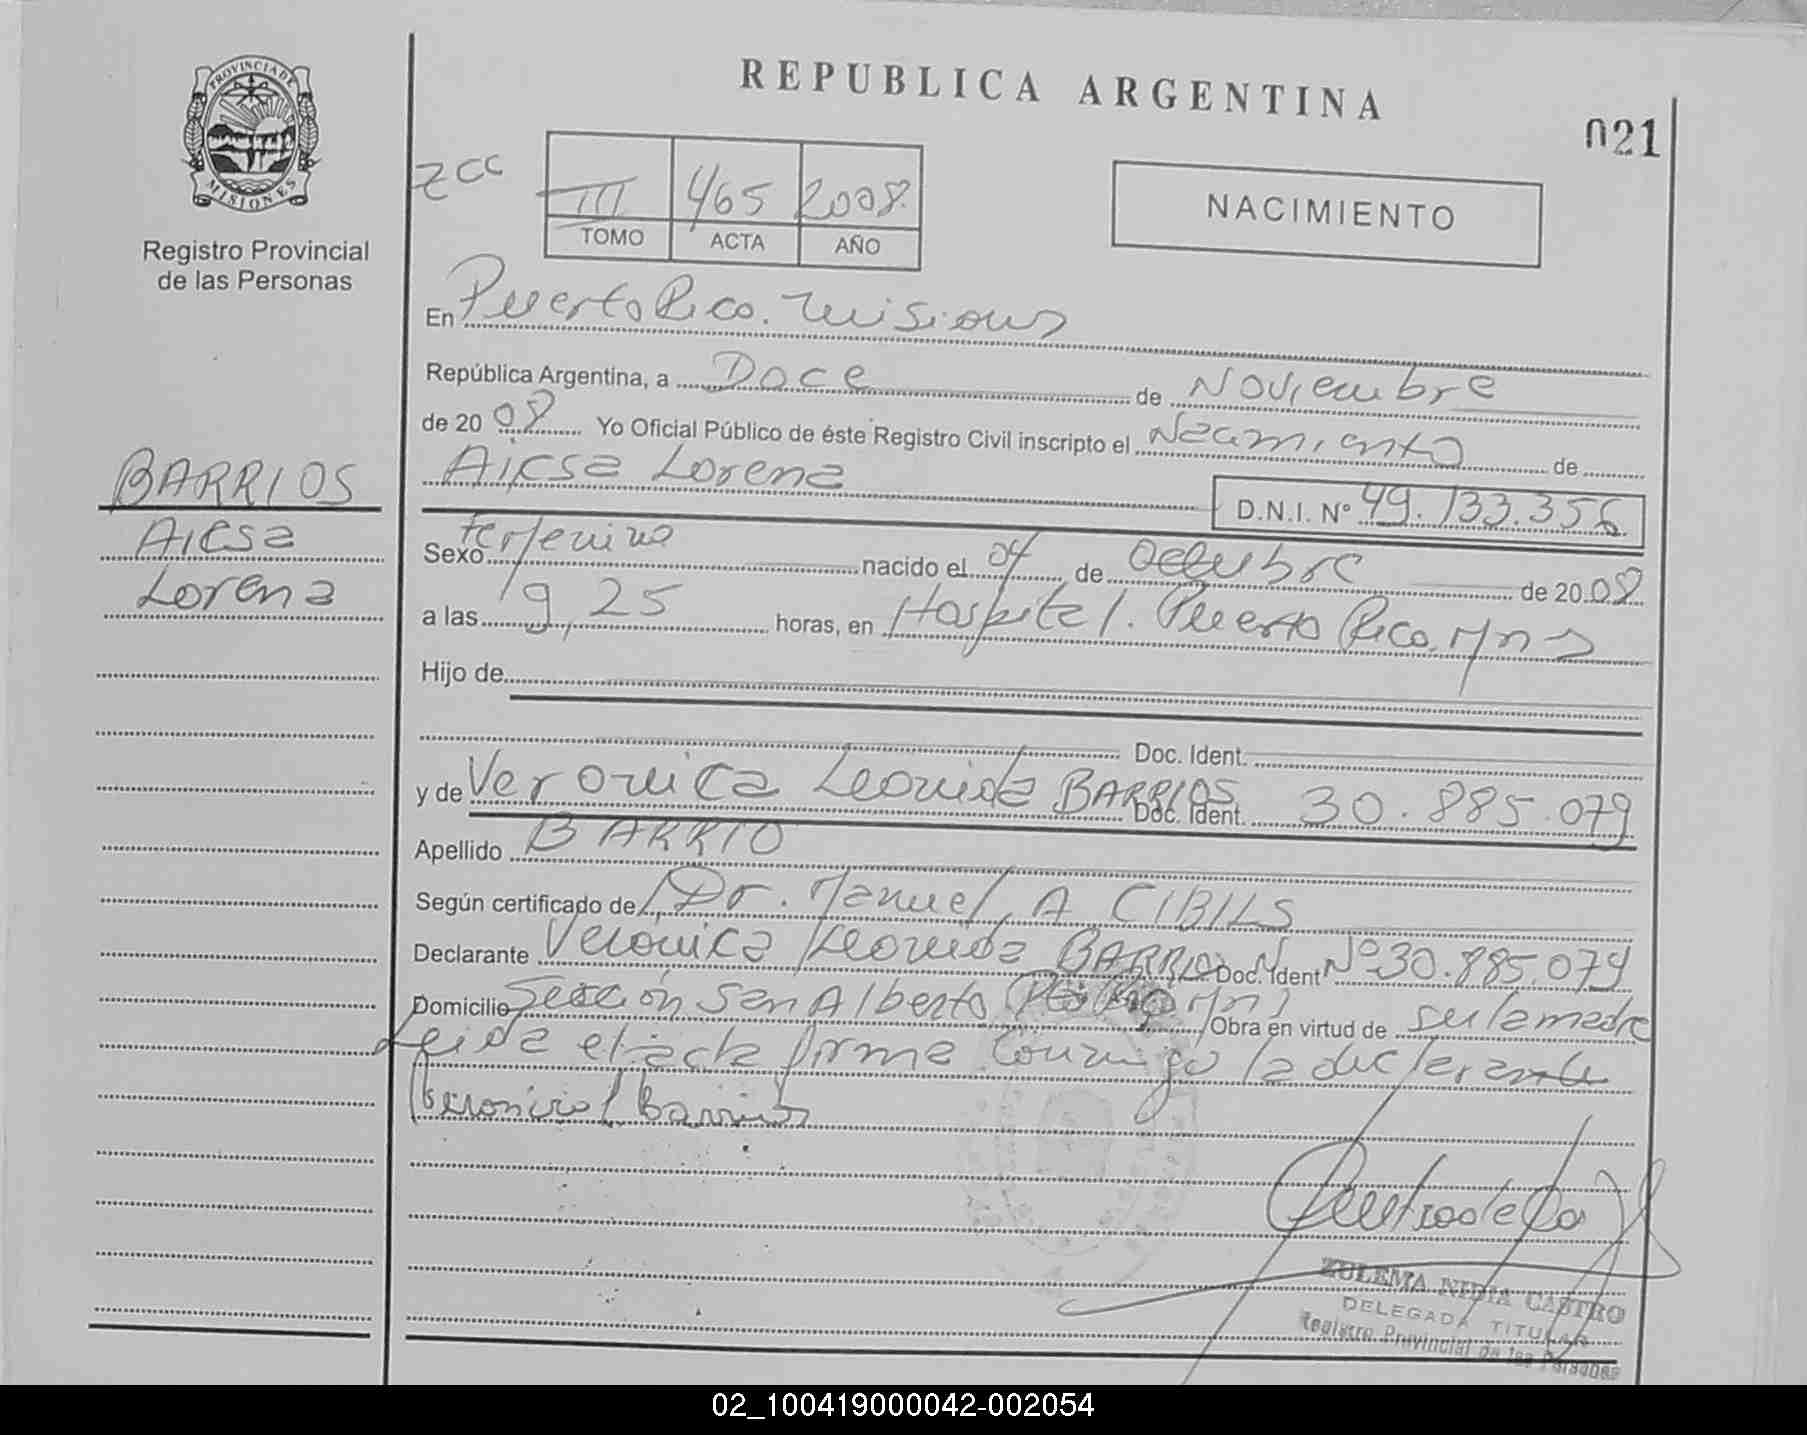 PROVINCIA DE
MISIONES
Registro Provincial
de las Personas
BARRIOS
Aicsa
Lorena
REPUBLICA ARGENTINA
021
zcc
III 465 2008.
TOMO ACTA AÑO
NACIMIENTO
En Puerto Rico. Misiones
República Argentina, a Doce de Noviembre
de 20 08 Yo Oficial Público de éste Registro Civil inscripto el Nacimiento de
Aicsa Lorena
D.N.I. Nº 49.133.356
Sexo Femenino nacido el 04 de Octubre de 20 08
a las 19,25 horas, en Hospital. Puerto Rico, Mns
Hijo de
Doc. Ident.
y de Veronica Leonida BARRIOS Doc. Ident. 30.885.079
Apellido BARRIO
Según certificado de Dr. Manuel A CIBILS
Declarante Veronica Leonida BARRIOS Doc. Ident Nº 30.885.079
Domicilio Sección San Alberto Obra en virtud de ser la madre
Leida el acta firma conmigo la declarante
Veronica L Barrios
ZULEMA NIDIA CASTRO
DELEGADA TITULAR
Registro Provincial de las Personas
02_100419000042-002054